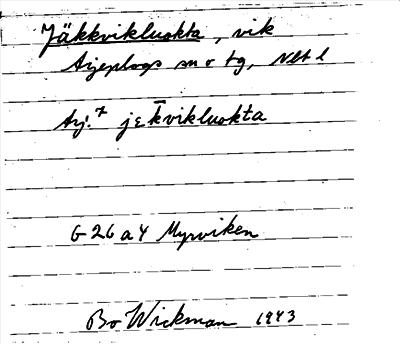 Jäkkvikluokta, vik
Arjeplogs sn o tg, Nbt l
Arj. jɛk̄vikluokta
G 26 a 4 Myrviken
Bo Wickman 1943